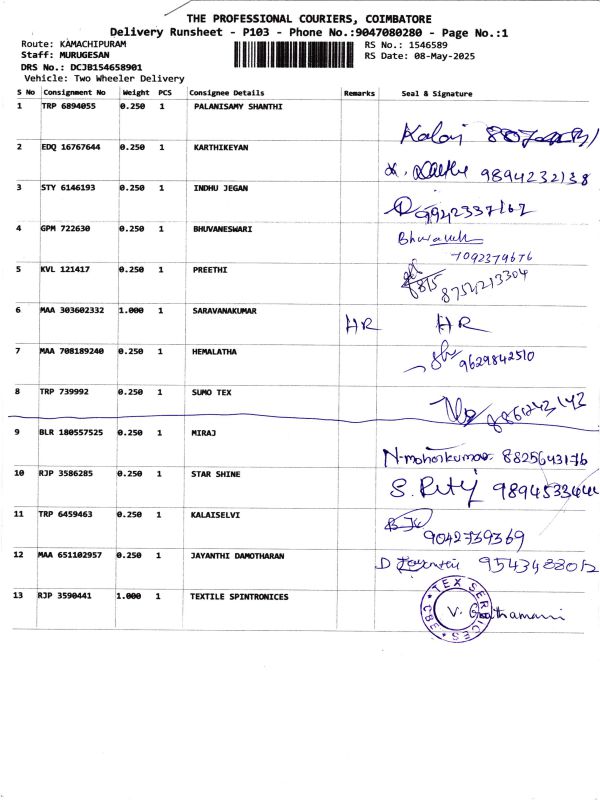 THE PROFESSIONAL COURIERS, COIMBATORE
Delivery Runsheet - P103 - Phone No.:9047080280 - Page No.:1
Route: KAMACHIPURAM RS No.: 1546589
Staff: MURUGESAN RS Date: 08-May-2025
DRS No.: DCJB154658901
Vehicle: Two Wheeler Delivery
S No Consignment No Weight PCS Consignee Details Remarks Seal & Signature
1 TRP 6894055 0.250 1 PALANISAMY SHANTHI
Kalai
2 EDQ 16767644 0.250 1 KARTHIKEYAN
9894232138
3 STY 6146193 0.250 1 INDHU JEGAN
9942337167
4 GPM 722630 0.250 1 BHUVANESWARI
7092379676
5 KVL 121417 0.250 1 PREETHI
8754213304
6 MAA 303602332 1.000 1 SARAVANAKUMAR
HR HR
7 MAA 708189240 0.250 1 HEMALATHA
9629842510
8 TRP 739992 0.250 1 SUMO TEX
9 BLR 180557525 0.250 1 MIRAJ
N-mohankumar 8825643176
10 RJP 3586285 0.250 1 STAR SHINE
9894533444
11 TRP 6459463 0.250 1 KALAISELVI
9042739369
12 MAA 651102957 0.250 1 JAYANTHI DAMOTHARAN
9543488012
13 RJP 3590441 1.000 1 TEXTILE SPINTRONICES
TEX SERVICES
CBE
V. Geethamani